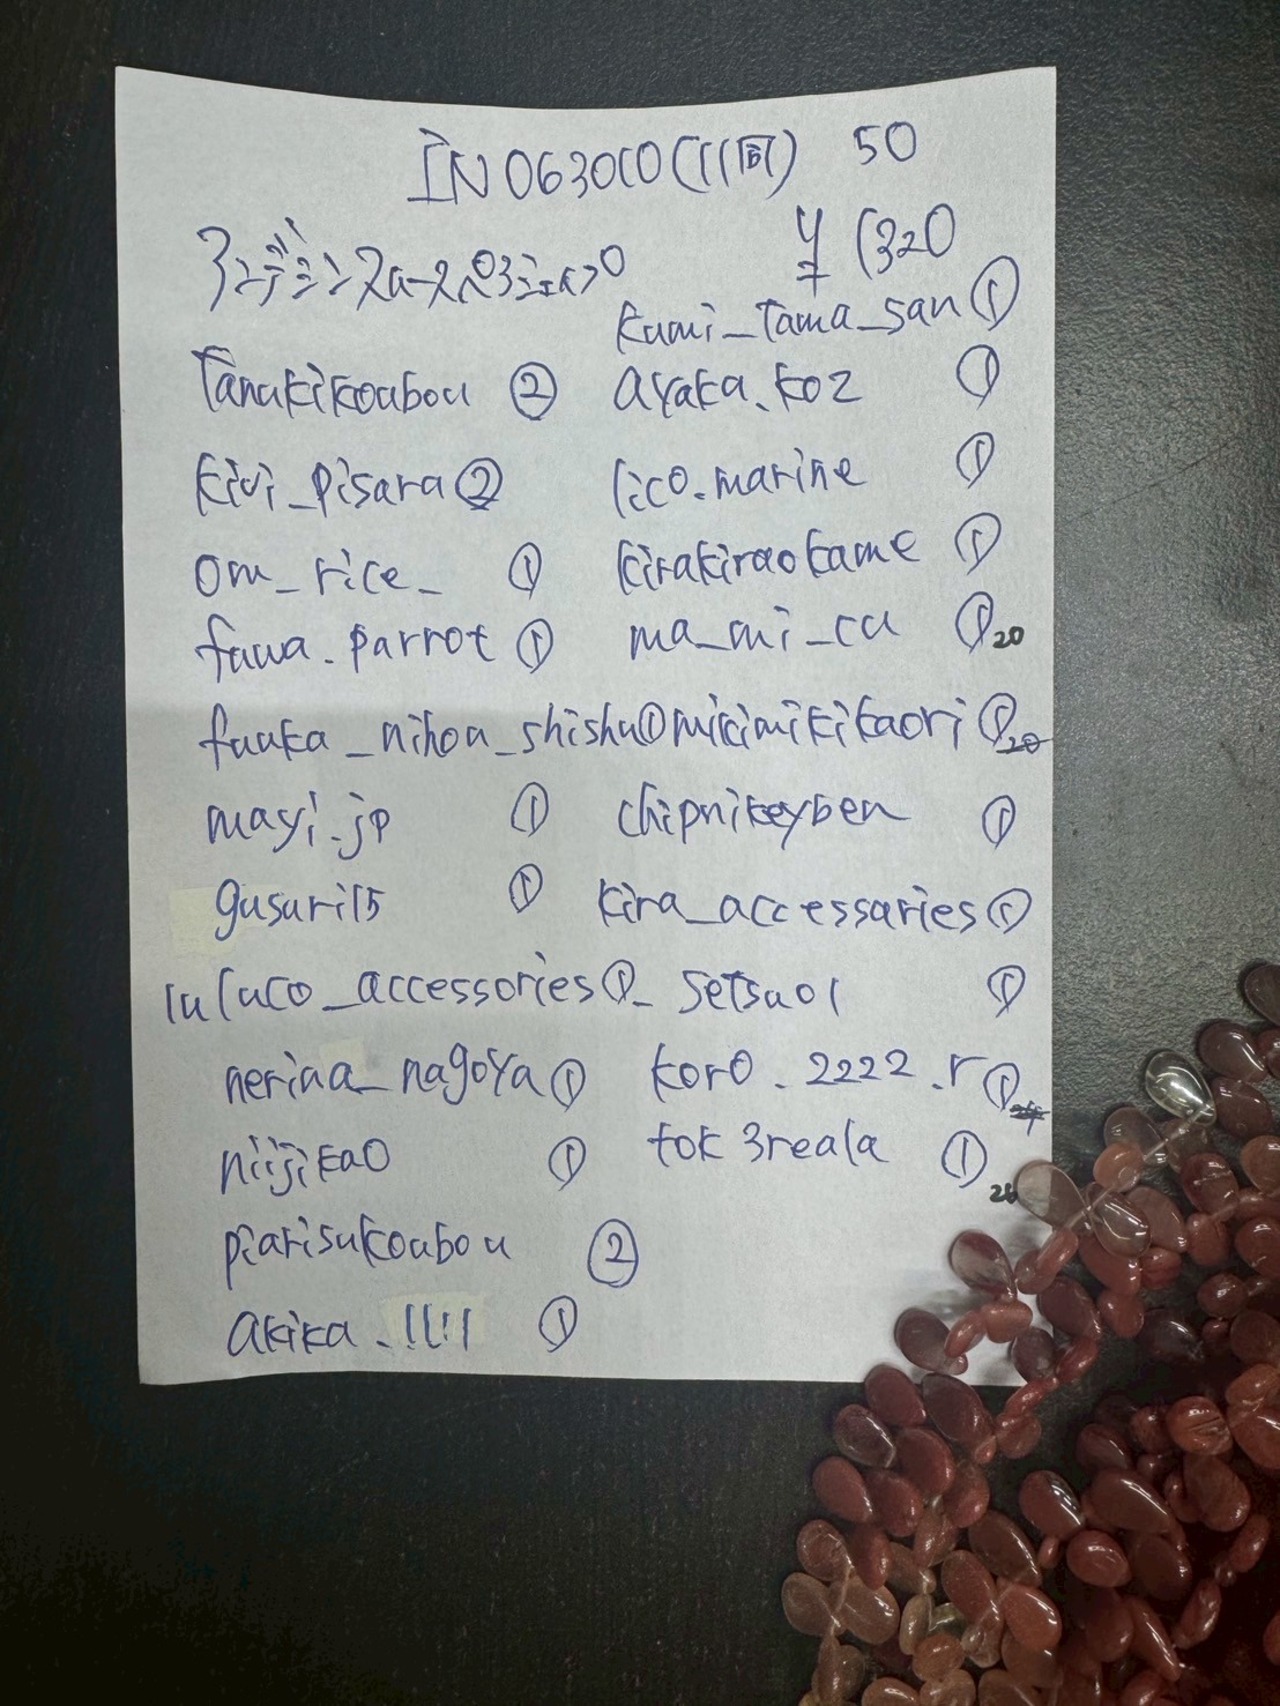 IN063010(11時) 50
¥1320
kumi_tama_san①
Tanukikoubou ②
ayaka.koz ①
kivi_pisara②
lico.marine ①
om_rice_ ①
kirakiraokame ①
fuwa.parrot ①
ma_mi_cu ①20
fuuka_nihon_shishu①
mikimikikaori ①20
mayi.jp ①
chipnikeyben ①
gusuri15 ①
kira_accessaries①
luluco_accessories①
setsuo1 ①
nerina_nagoya①
koro.2222.r①
niijikao ①
tok3reala ①
piarisukoubou ②
akika.1111 ①